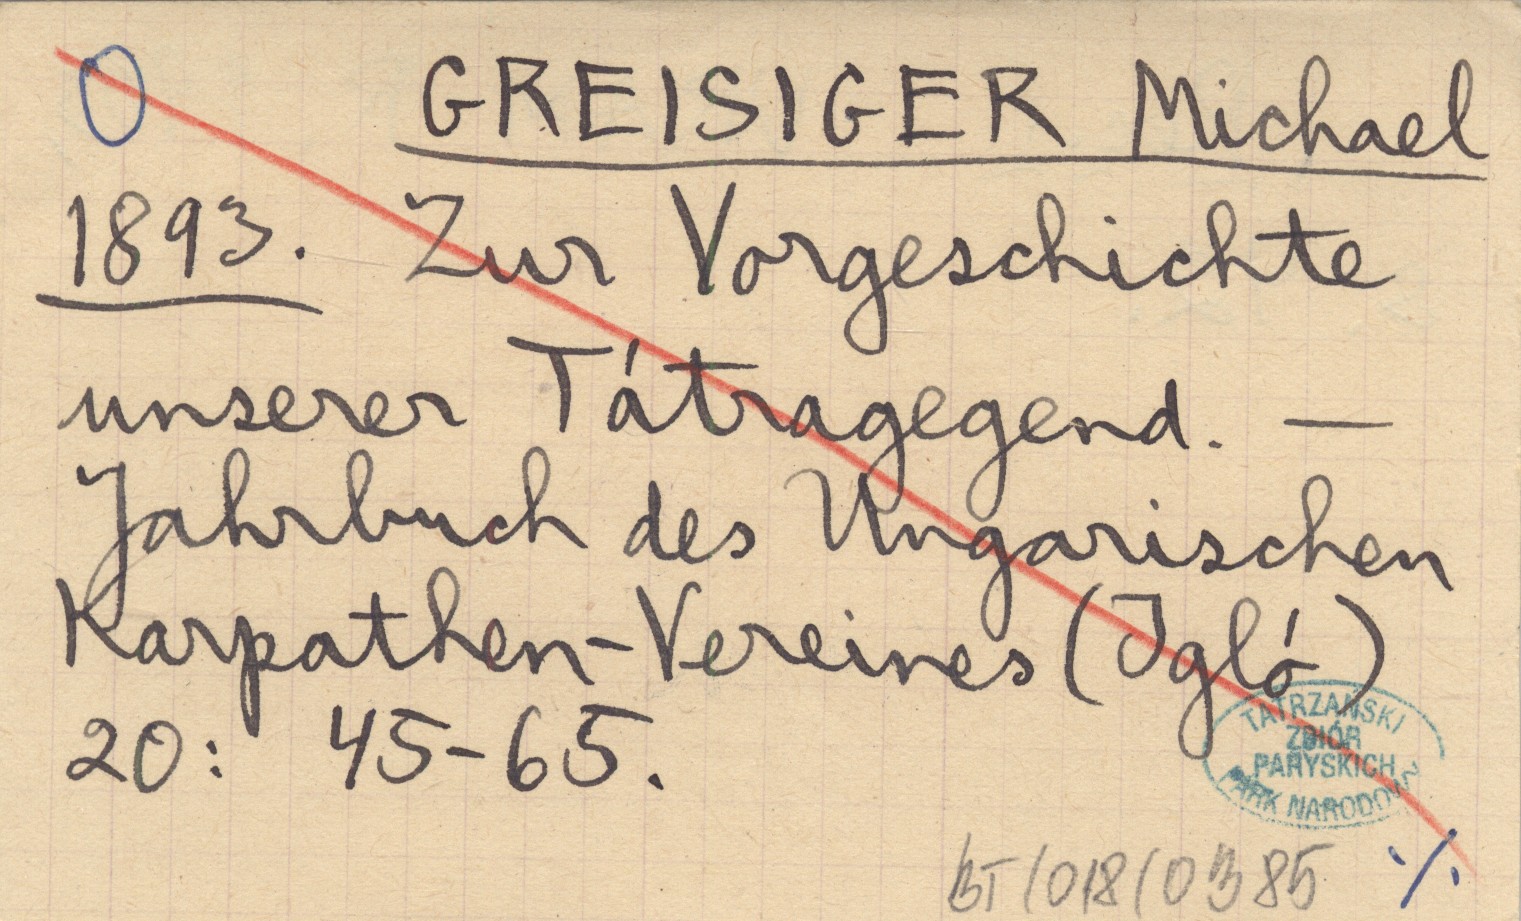 O GREISIGER Michael
1893. Zur Vorgeschichte
unserer Tátragegend. —
Jahrbuch des Ungarischen
Karpathen-Vereines (Igló)
20: 45-65.
TATRZAŃSKI
ZBIÓR
PARYSKICH
PARK NARODOWY
BT/018/0385 ·/.